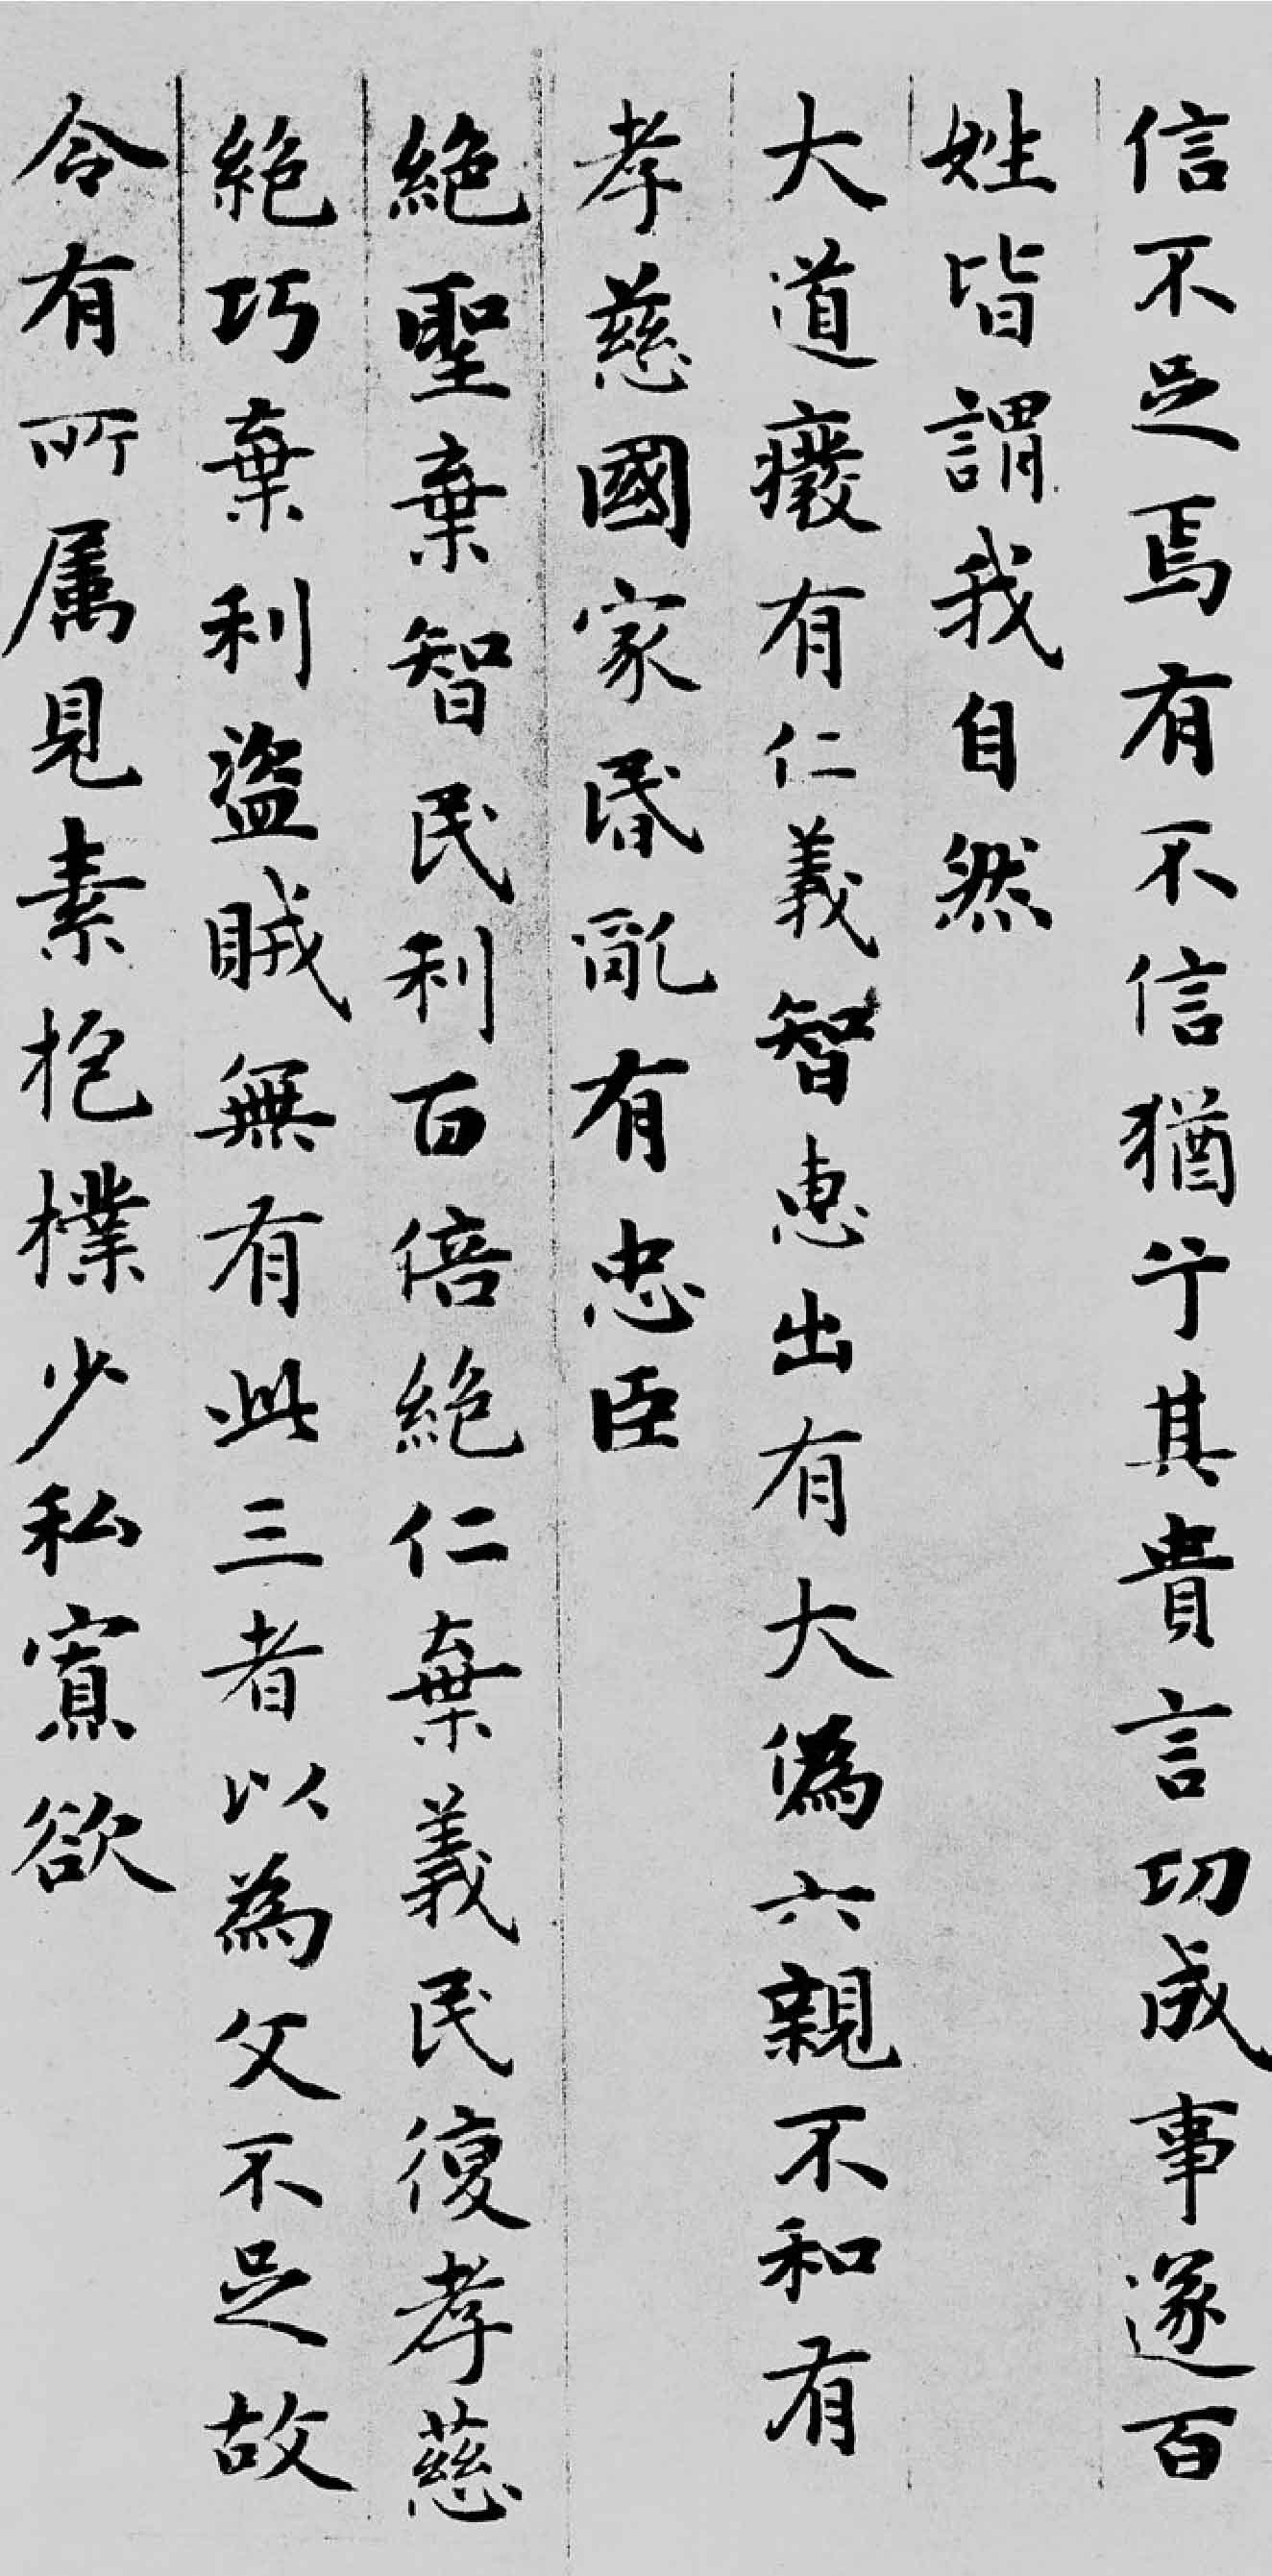 信不足焉有不信猶兮其貴言功成事遂百
姓皆謂我自然
大道癈有仁義智惠出有大偽六親不和有
孝慈國家昬亂有忠臣
絕聖棄智民利百倍絕仁棄義民復孝慈
絕巧棄利盜賊無有此三者以為文不足故
令有所属見素抱樸少私寡欲